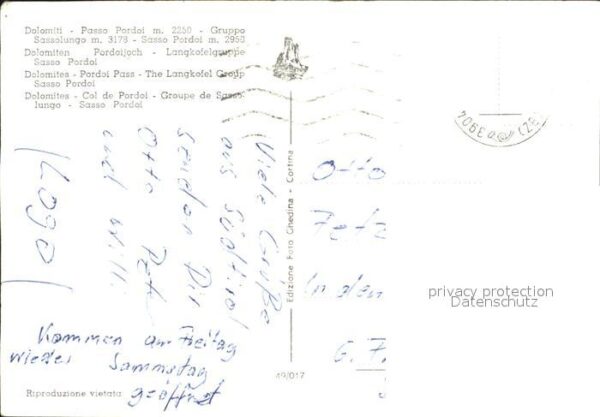 Dolomiti - Passo Pordoi m. 2250 - Gruppo
Sassolungo m. 3178 - Sasso Pordoi m. 2950
Dolomiten Pordoijoch - Langkofelgruppe
Sasso Pordoi
Dolomites - Pordoi Pass - The Langkofel Group
Sasso Pordoi
Dolomites - Col de Pordoi - Groupe de Sasso-
lungo - Sasso Pordoi
Viele Grüße
aus Südtirol
senden Dir
Otto
und Willi
Kommen am Freitag
wieder Sammstag
geöffnet
Riproduzione vietata
Edizione Foto Ghedina - Cortina
49/017
Otto
In den
privacy protection
Datenschutz